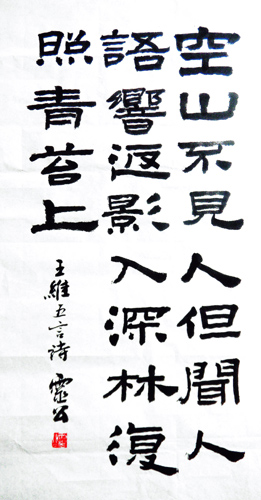 空山不見人但聞人
語響返影入深林復
照青苔上
王維五言詩